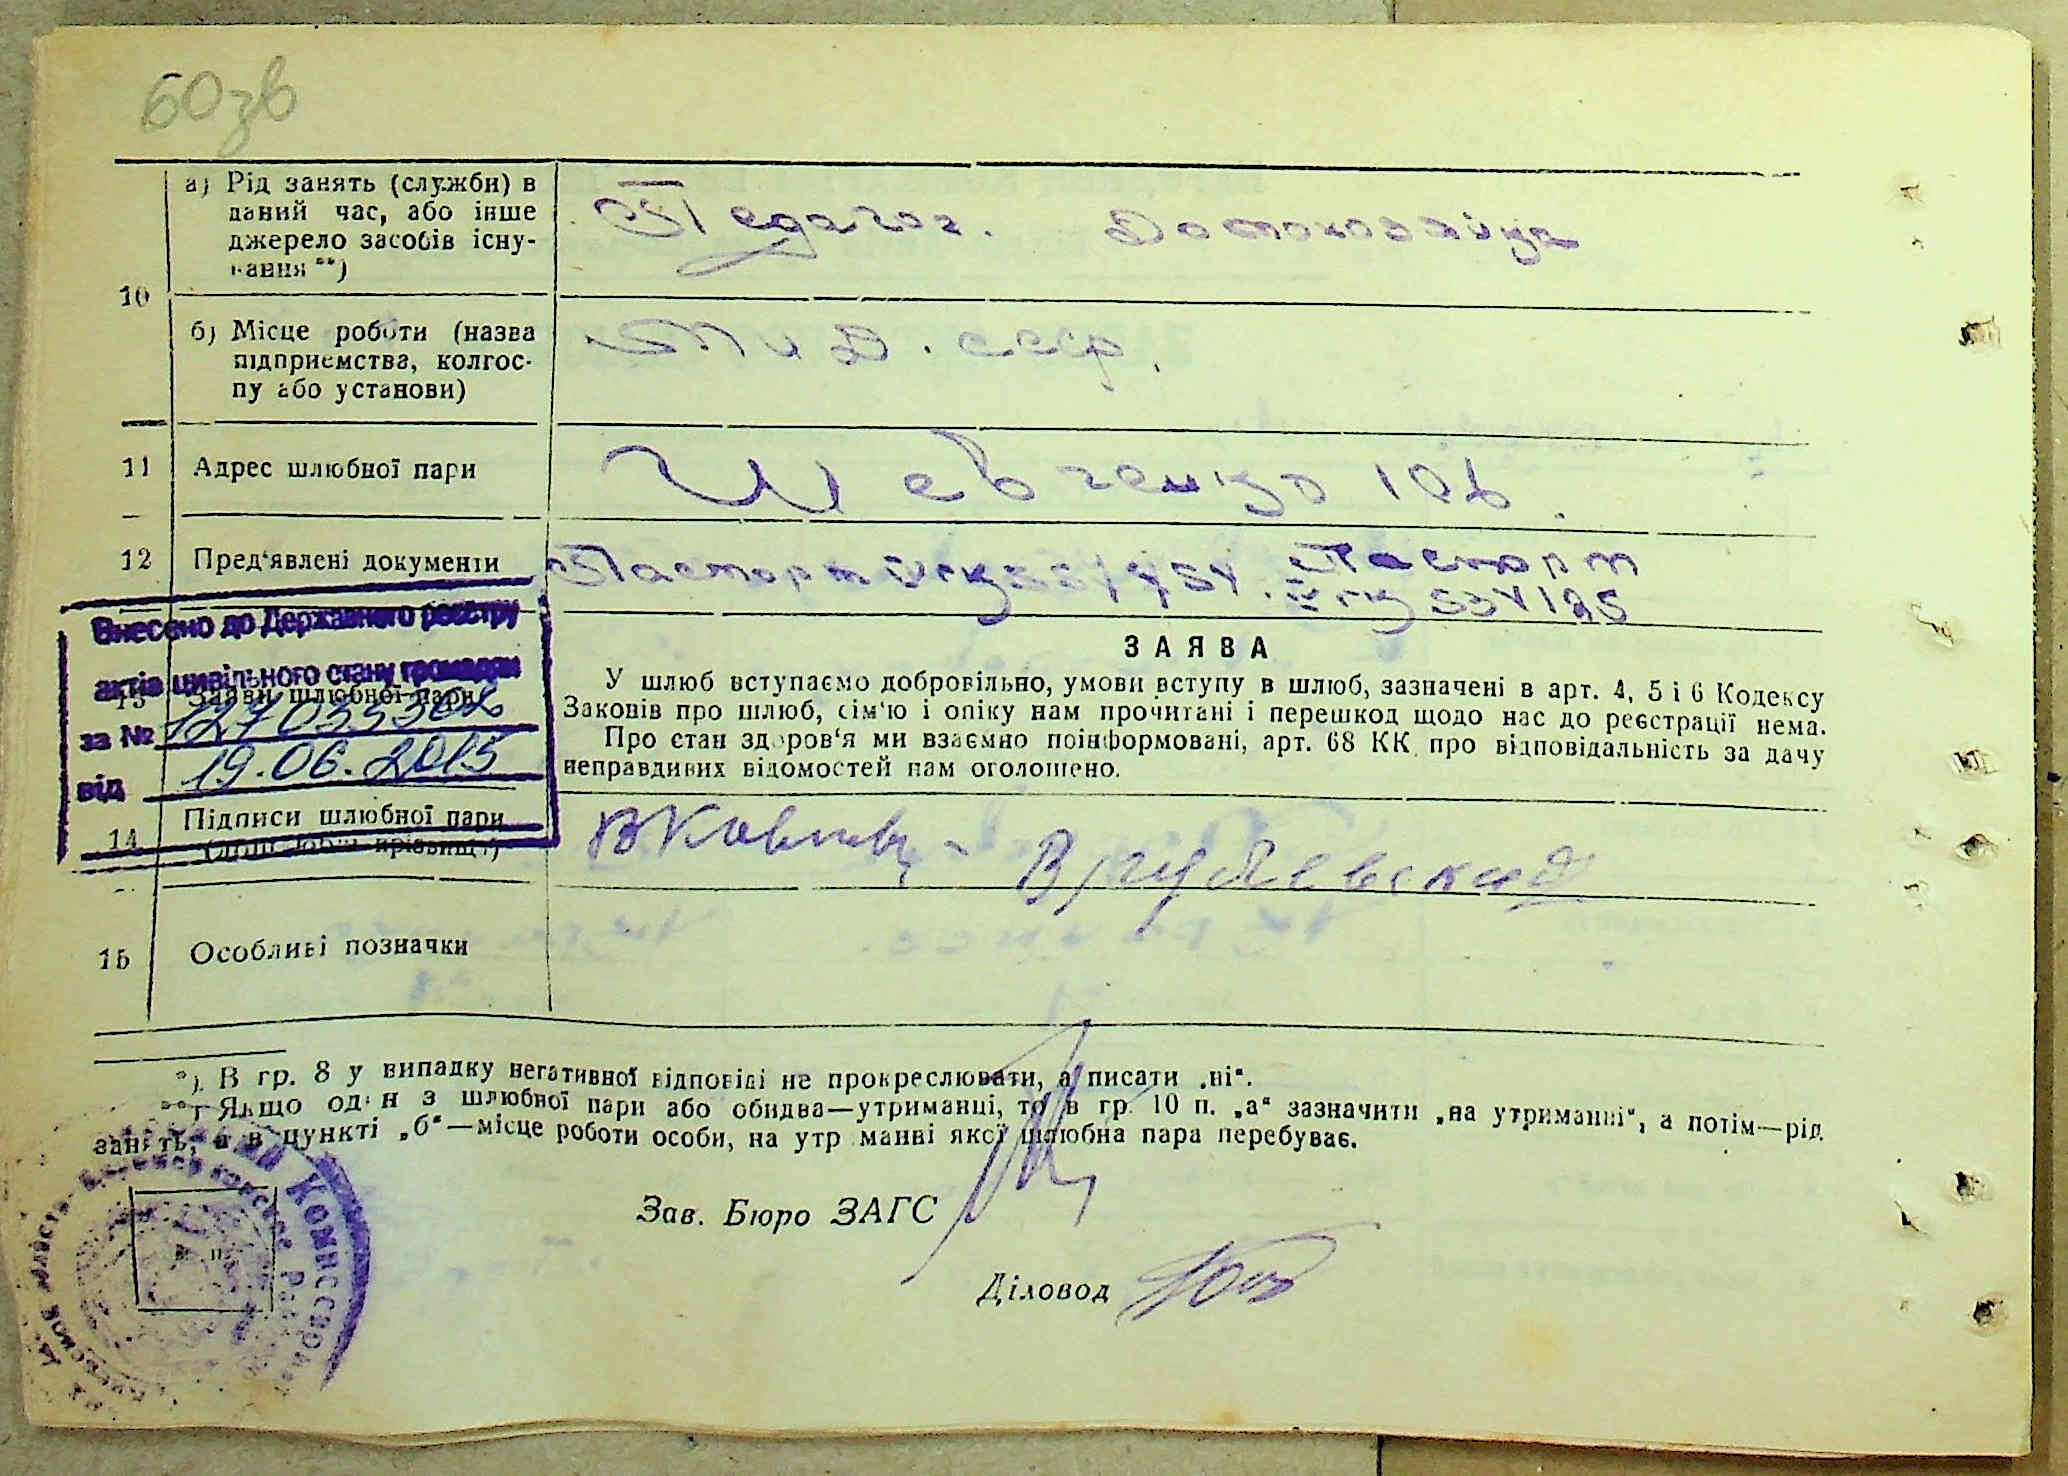 60зв
а) Рід занять (служби) в
даний час, або інше
джерело засобів існу-
вання **)
Педагог. Домохозяйка
10
б) Місце роботи (назва
підприємства, колгос-
пу або установи)
МИД. СССР.
11 Адрес шлюбної пари
Шевченко 10в.
12 Пред'явлені документи
Паспорт Паспорт
534125
Внесено до Державного реєстру
актів цивільного стану громадян
за №
від 19.06.2015
13 Заяви шлюбної пари
ЗАЯВА
У шлюб вступаємо добровільно, умови вступу в шлюб, зазначені в арт. 4, 5 і 6 Кодексу
Законів про шлюб, сім'ю і опіку нам прочитані і перешкод щодо нас до реєстрації нема.
Про стан здоров'я ми взаємно поінформовані, арт. 68 КК про відповідальність за дачу
неправдивих відомостей нам оголошено.
14 Підписи шлюбної пари
15 Особливі позначки
*) В гр. 8 у випадку негативної відповіді не прокреслювати, а писати „ні“.
**) Якщо один з шлюбної пари або обидва—утриманці, то в гр. 10 п. „а“ зазначити „на утриманні“, а потім—рід
занять, а в пункті „б“—місце роботи особи, на утриманні якої шлюбна пара перебуває.
Зав. Бюро ЗАГС
Діловод